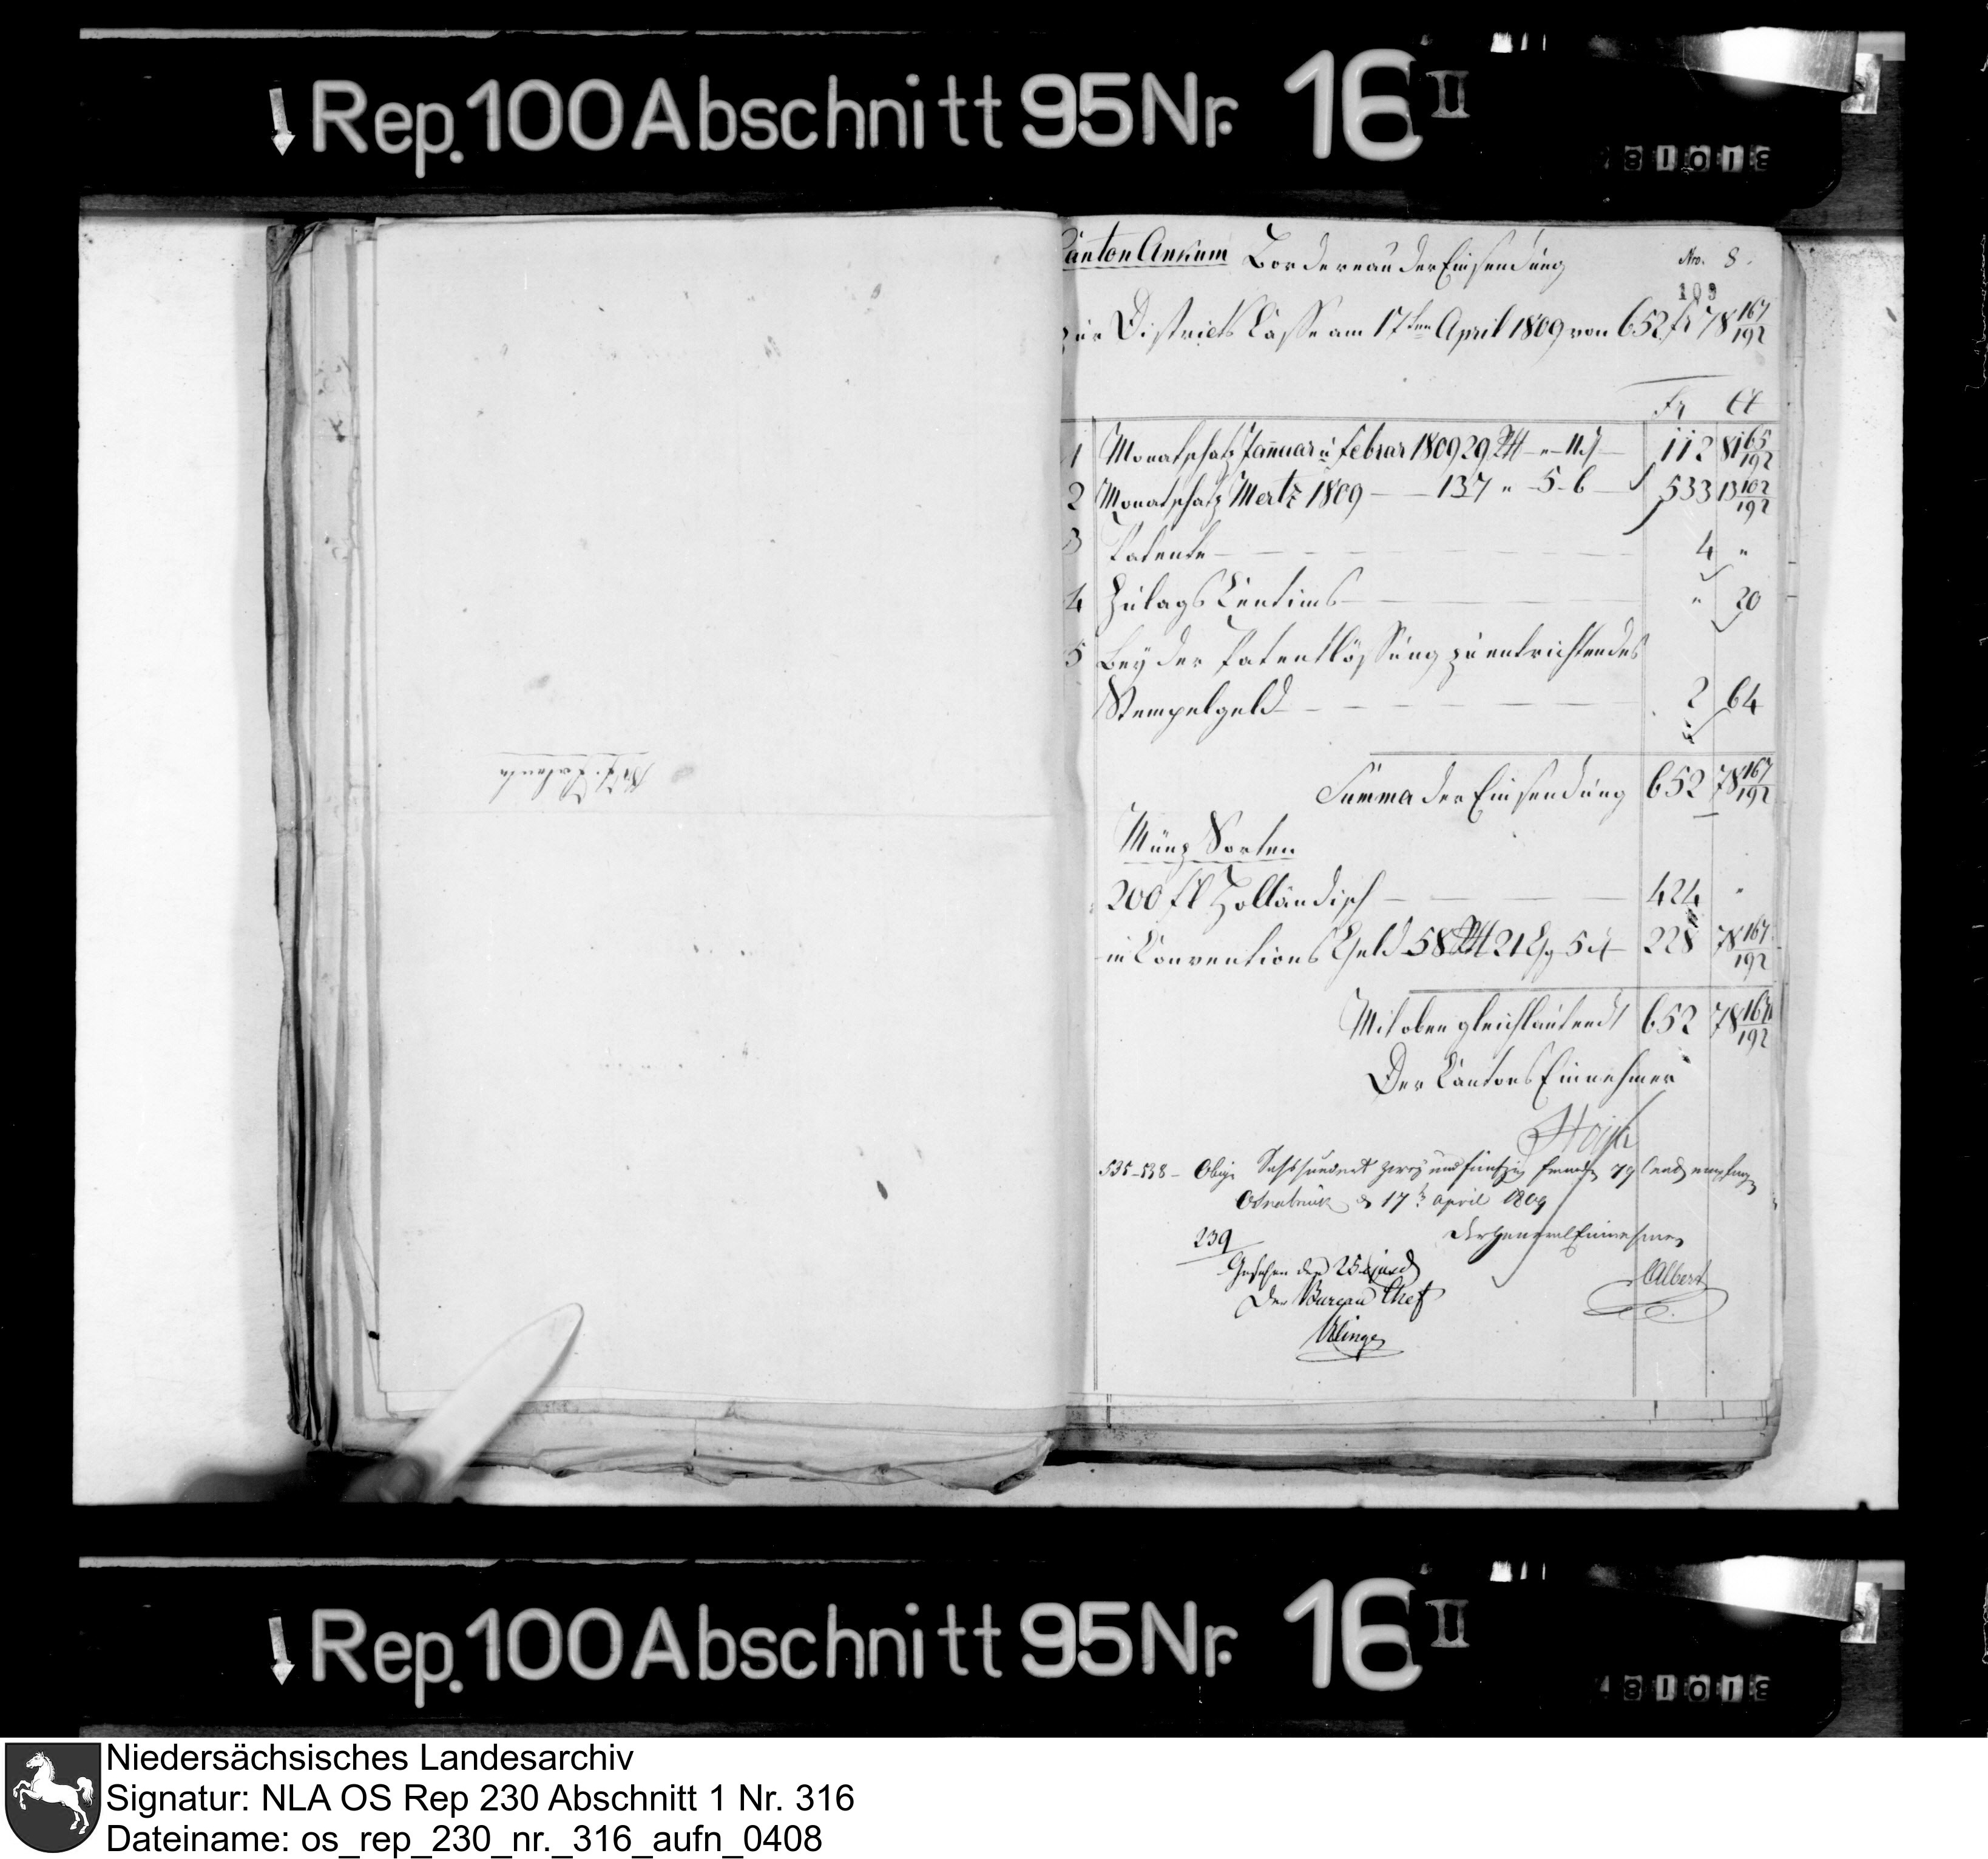 Rep. 100 Abschnitt 95 Nr. 16 II
Canton Ankum Bordereau der Einsendung Nro. 8.
103
zur Districts Casse am 17ten April 1809 von 652 fr 78 167/192
Fr Ct
1 Monatschatz Januar u Februar 1809 29 Rtl - " - 11 d 112 81 165/192
2 Monatschatz Mertz 1809 - - 137 " - 5 - 6 533 13 102/192
3 Patente 4 "
4 Zulags Centims " 20
5 Bey der Patentlössung zu entrichtendes
Stempelgeld 2 64
Summa der Einsendung 652 78 167/192
Münz Sorten
200 fl Holländisch 424 "
in Conventions Geld 58 Rtl 21 Gg 5 d 228 78 167/192
Mit oben gleichlautend 652 78 167/192
Der Cantons Einnehmer
535-538 - Obige Sechshundert zwey und funfzig Franken 79 Cent empfangen
Osnabrück d 17t April 1809
Der General Einnehmer
239
Gesehen den 25
CAlbert
Der Bureau Chef
Rep. 100 Abschnitt 95 Nr. 16 II
Niedersächsisches Landesarchiv
Signatur: NLA OS Rep 230 Abschnitt 1 Nr. 316
Dateiname: os_rep_230_nr._316_aufn_0408